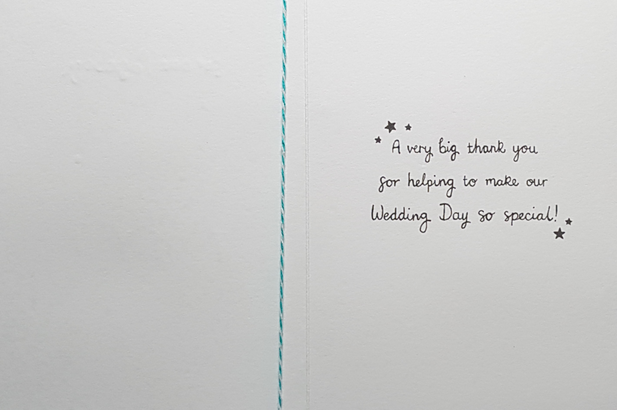 A very big thank you
for helping to make our
Wedding Day so special!